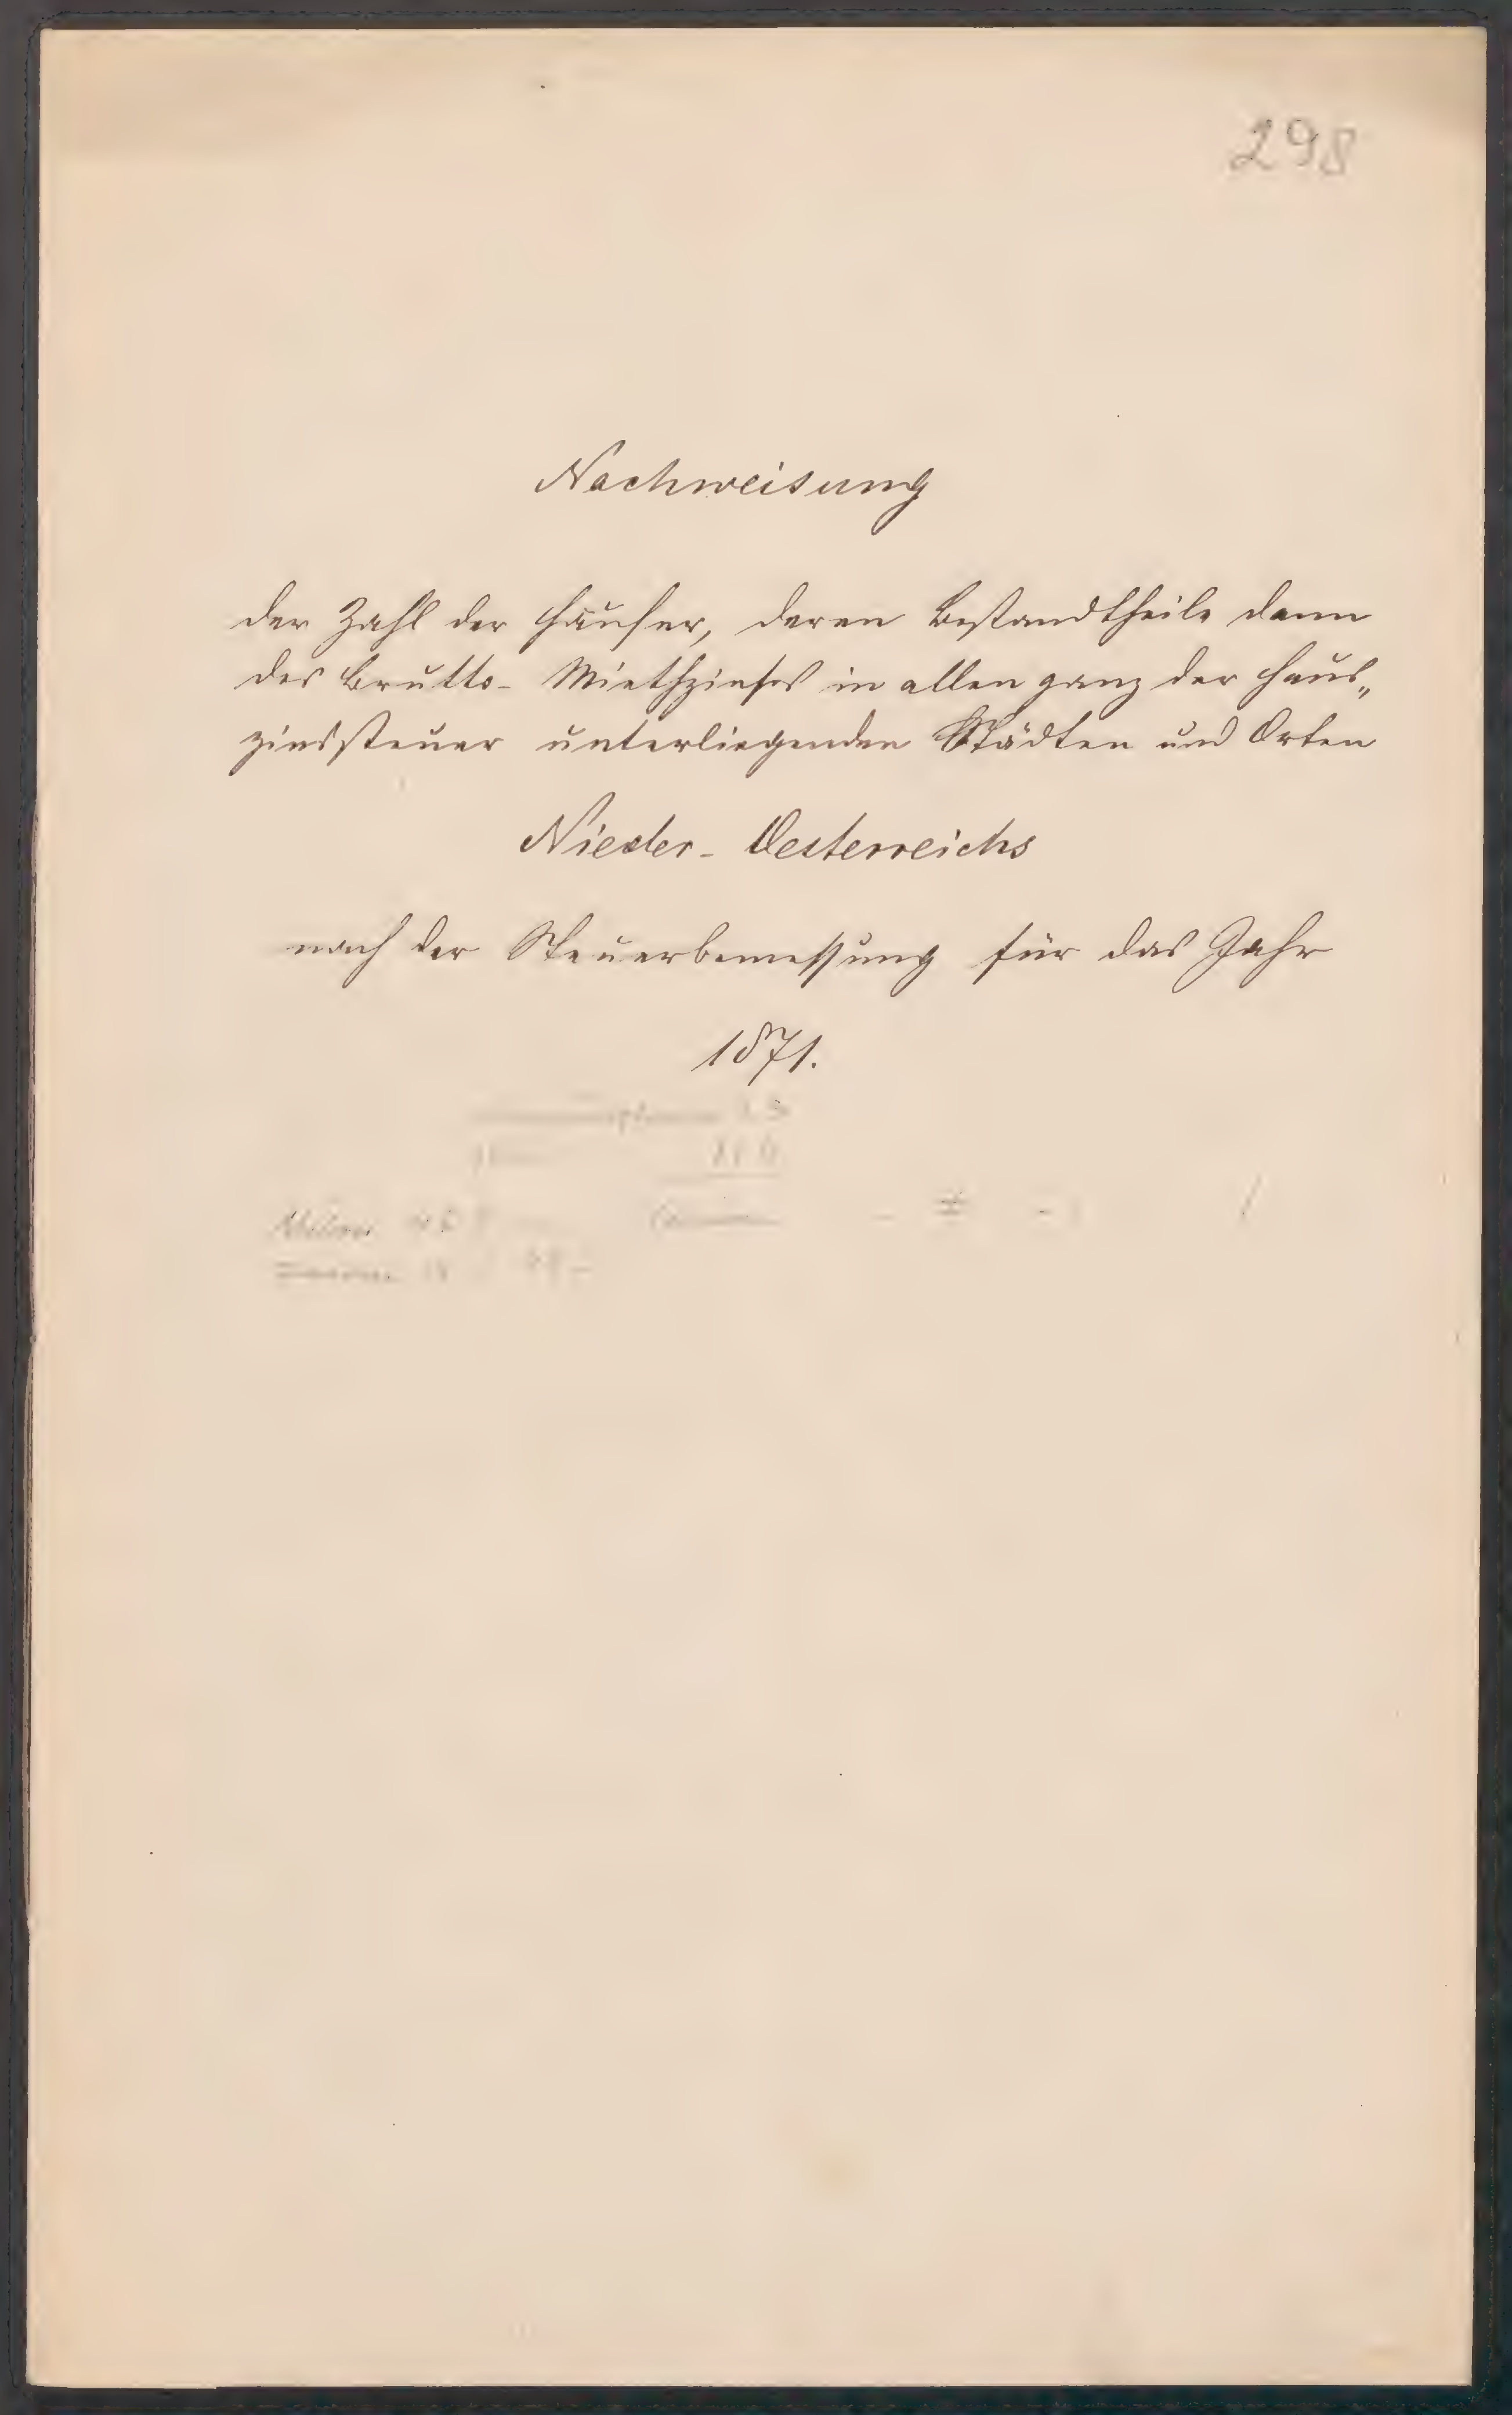 298
Nachweisung
der Zahl der Häuser, deren Bestandtheile dann
des Brutto- Miethzinses in allen ganz der Haus„
zinssteuer unterliegenden Städten und Orten
Nieder- Oesterreichs
nach der Steuerbemessung für das Jahr
1871.